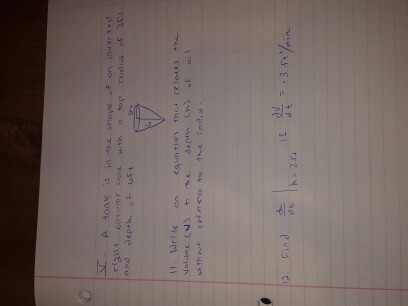 V. A tank is in the shape of an inverted
right circular cone with a top radius of 3ft
and depth of 6ft.
11. Write an equation that relates the
volume (V) to the depth (h) of oil
without reference to the radius.
12. Find dh/dt | h=2ft if dV/dt = .3 ft³/min